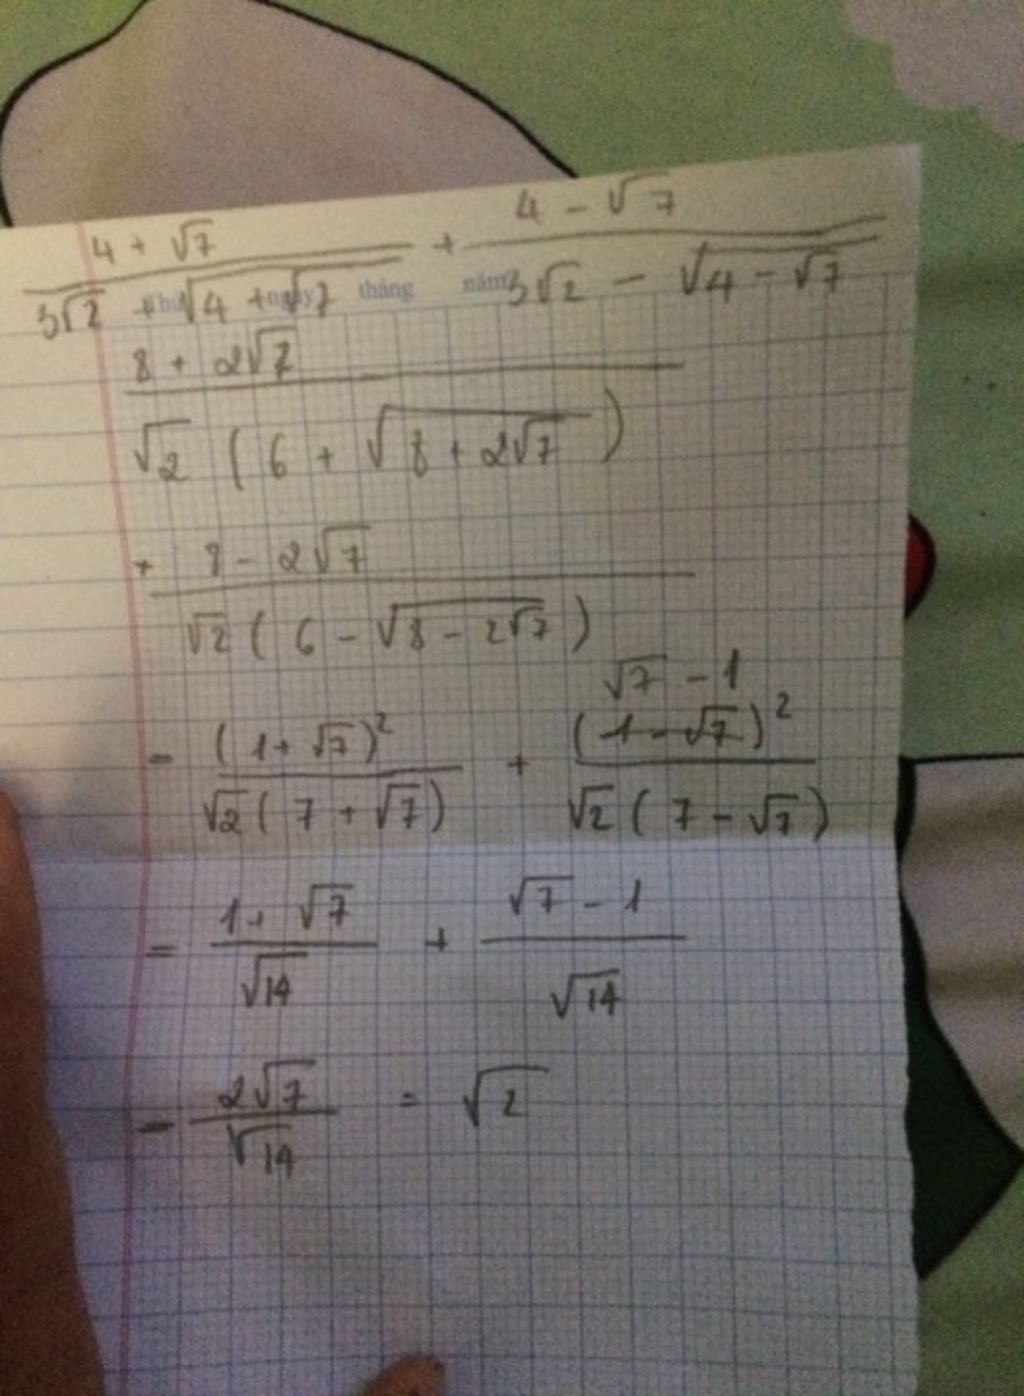 4 + √7 / 3√2 + √(4 + √7) + 4 - √7 / 3√2 - √(4 - √7)
tháng năm
8 + 2√7 / √2 ( 6 + √(8 + 2√7) )
+ 8 - 2√7 / √2 ( 6 - √(8 - 2√7) )
√7 - 1
= (1 + √7)² / √2 ( 7 + √7) + (1 - √7)² / √2 ( 7 - √7)
= 1 + √7 / √14 + √7 - 1 / √14
= 2√7 / √14 = √2